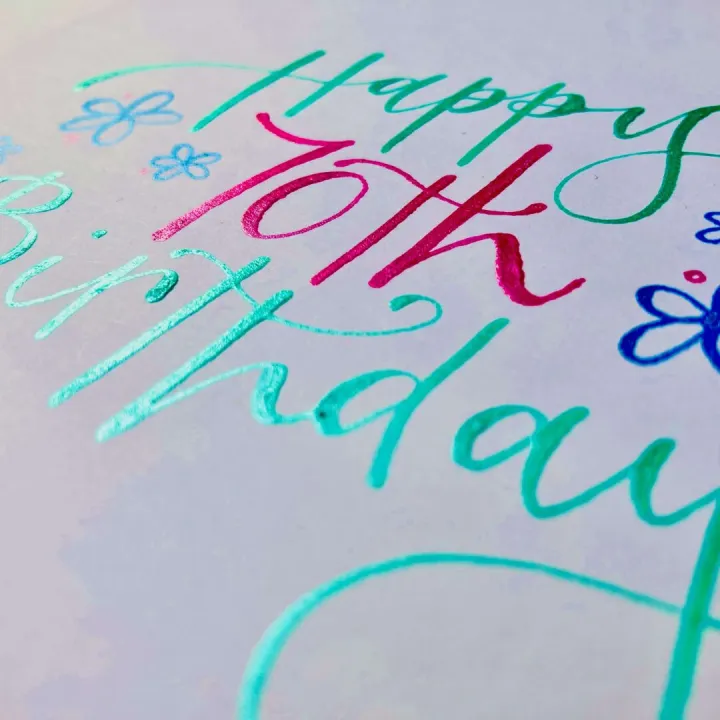 Happy
70th
Birthday